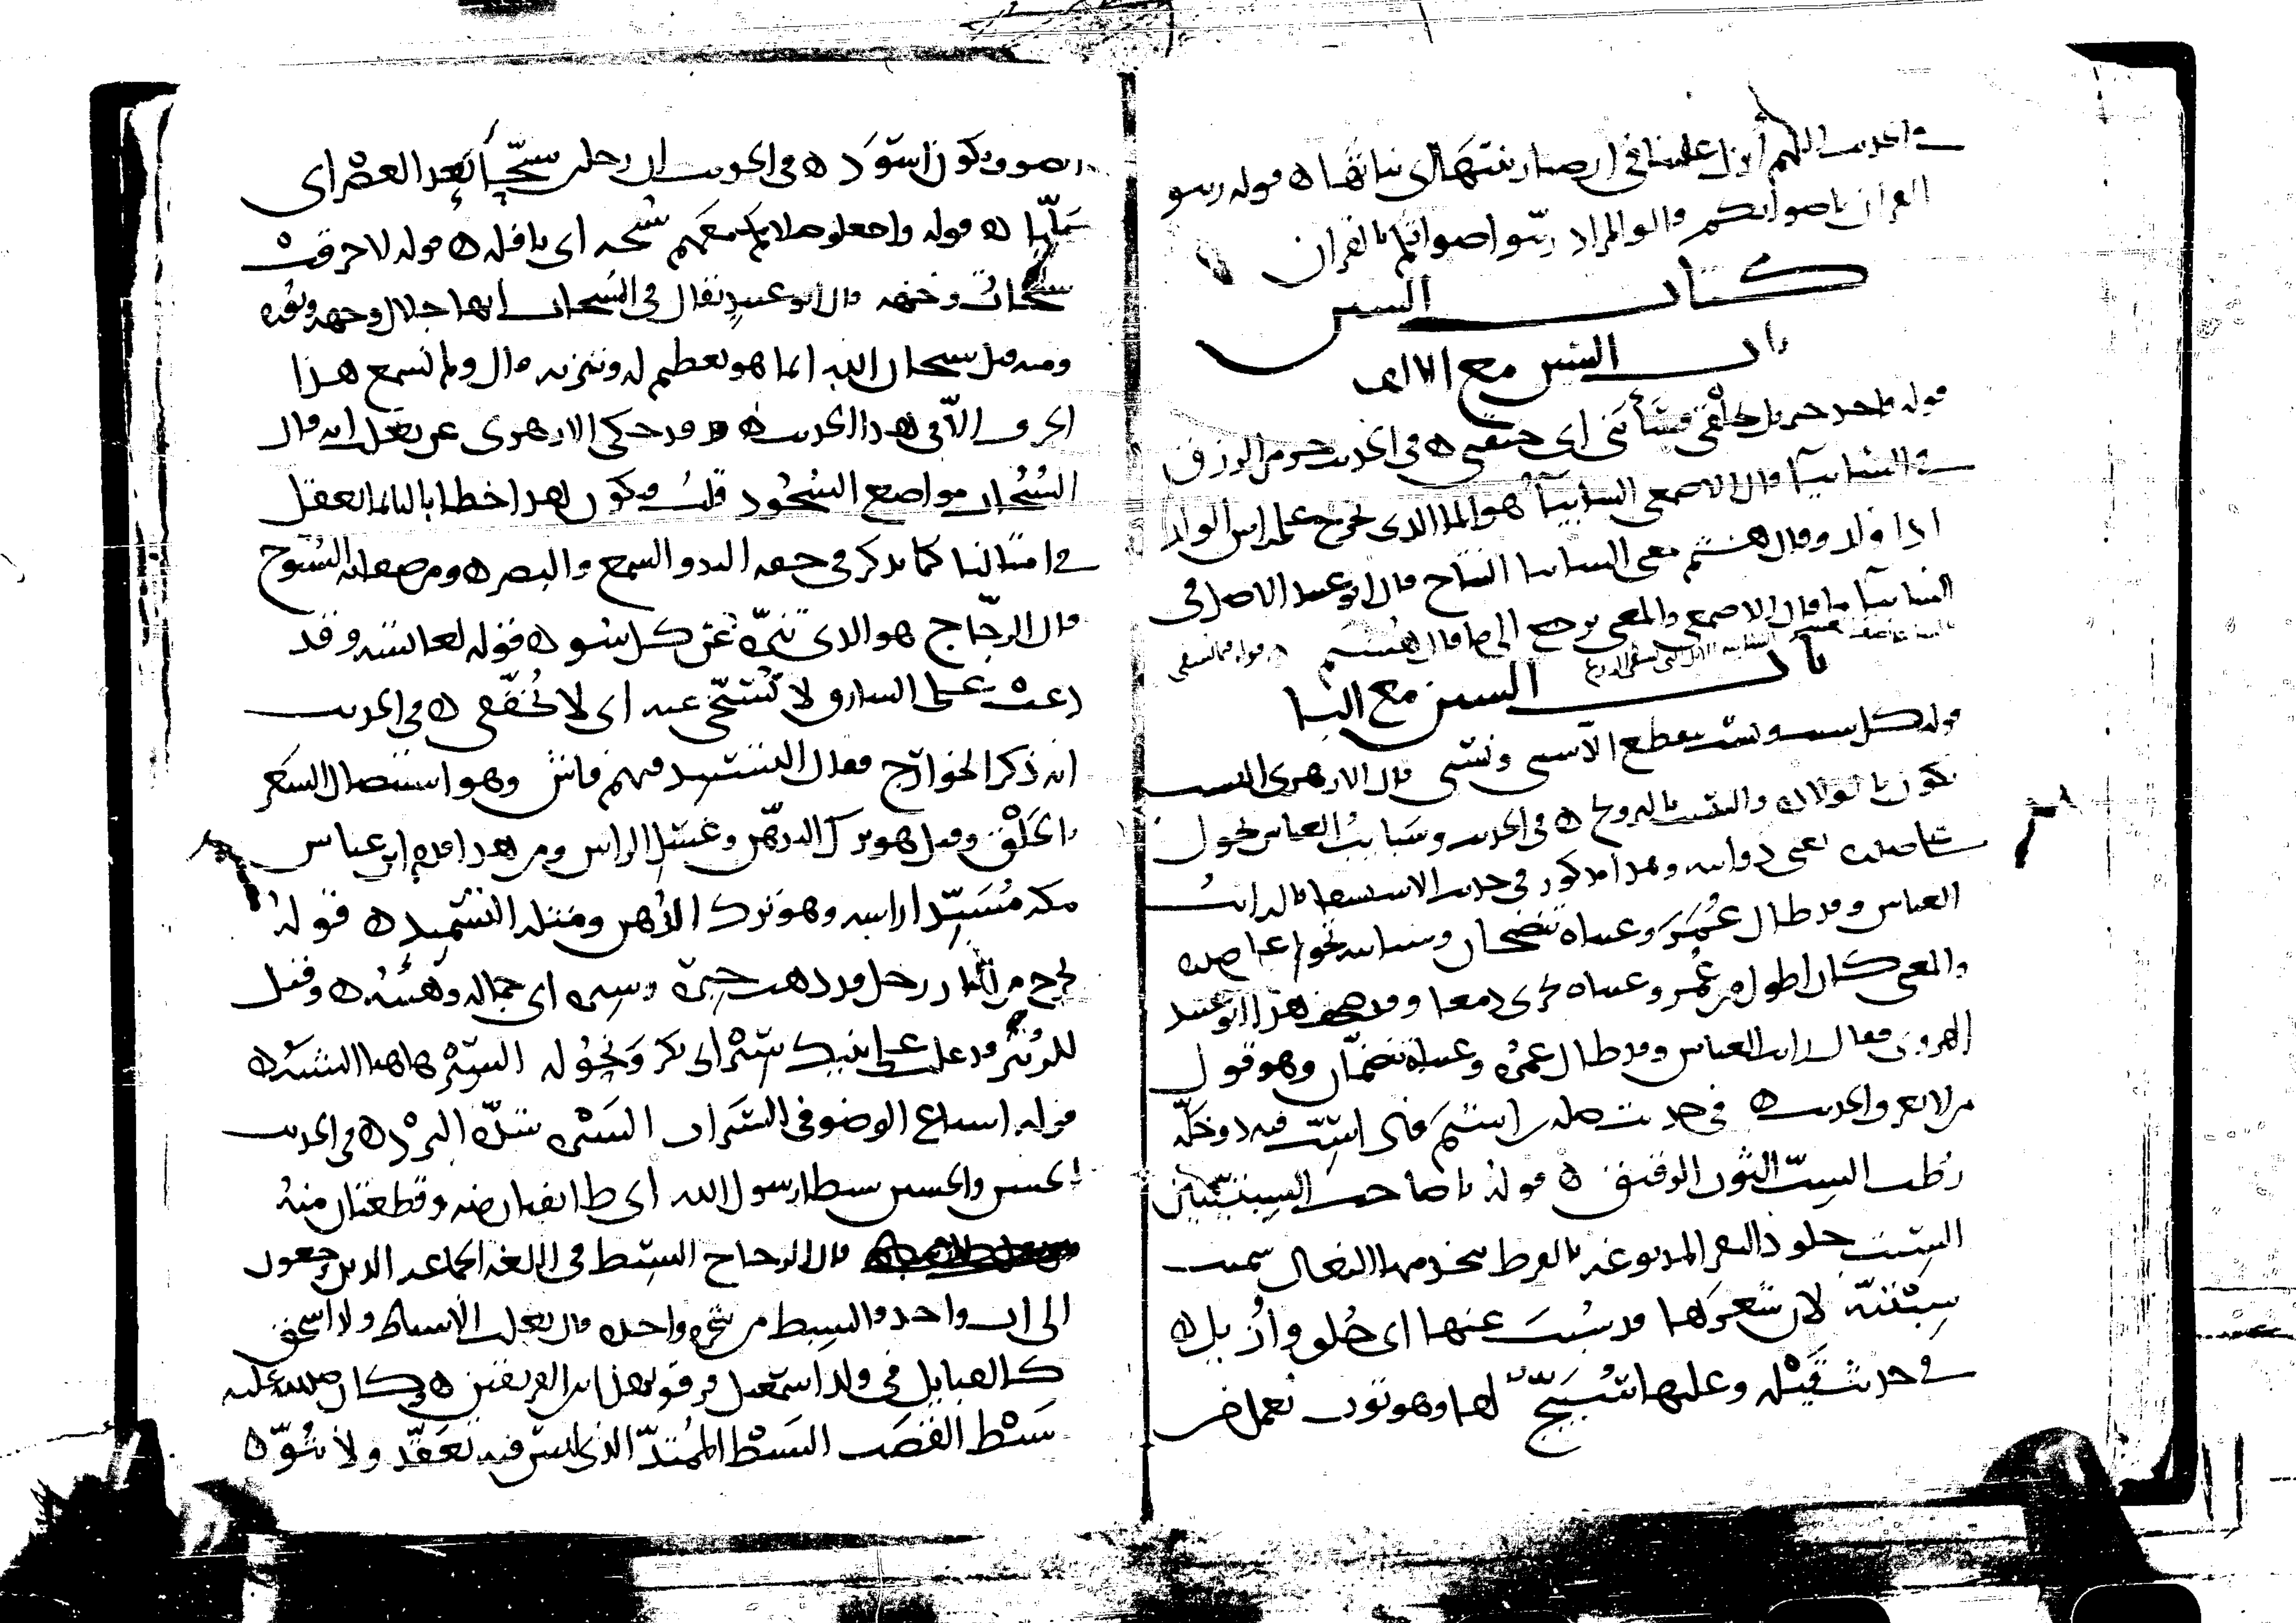 في الحديث اللهم أنزل علينا في أرضنا زينتها أي نباتها ه قوله زينوا
القران باصواتكم قالوا المراد زينوا اصواتكم بالقران
كتاب السين
باب السين مع الالف
قوله فاخذ جبريل بحلقي فسأبني اي خنقني ه في الحديث جزء من الرزق
في السابياء قال الاصمعي السابياء هو الماء الذي يخرج على راس الولد
اذا ولد وقال هشيم معنى السابيا النتاج قال ابو عبيد الاصل في
السابياء ما قال الاصمعي والمعنى يرجع الى ما قال هشيم
باب السين مع الباء
قوله كل سبب ونسب ينقطع الا سببي ونسبي قال الازهري النسب
يكون بالولادة والسبب بالتزويج ه في الحديث وسبايب العباس تجول
على صدره يعني ذوائبه وهذا مذكور في حديث الاستسقا قال رايت
العباس وقد طال عمر وعيناه تنضحان وسبايبه تجول على صدره
والمعنى كان اطول من عمر وعيناه تجري دمعا وقد صحف هذا ابو عبيد
الهروي فقال رايت العباس وقد طال عمره وعيناه تنضمان وهو قول
من لا يعرف الحديث ه في حديث صلة بن اشيم فاذا سب فيه دوخلة
رطب السب الثوب الرقيق ه قوله يا صاحب السبتيتين
السبت جلود البقر المدبوغة بالقرظ يتخذ منها النعال سميت
سبتية لان شعرها قد سبت عنها اي حلق وازيل ه
في حديث قيلة وعليها سبيج لها وهو ثوب يعمل من
الصوف ويكون اسود ه في الحديث ان رجلين سبحا بعد العصر اي
صليا ه قوله واجعلوا صلاتكم معهم سبحة اي نافلة ه قوله لاحرقت
سبحات وجهه قال ابو عبيد يقال في السبحات انها جلال وجهه ونوره
ومنه قيل سبحان الله انما هو تعظيم له وتنزيه قال ولم نسمع هذا
الحرف الا في هذا الحديث ه وقد حكى الازهري عن ثعلب انه قال
السبحات مواضع السجود قلت فيكون هذا خطابا لنا بما نعقل
في امثالنا كما يذكر في حقه اليد والسمع والبصر ه ومن صفاته السبوح
قال الزجاج هو الذي تنزه عن كل سوء ه قوله لعايشة وقد
دعت على السارق لا تسبخي عنه اي لا تخففي ه في الحديث
انه ذكر الخوارج فقال التسبيد فيهم فاش وهو استيصال الشعر
بالحلق وقيل هو ترك التدهن وغسل الراس ومن هذا قدم ابن عباس
مكة مسبدا راسه وهو ترك الدهن ومثله التسميد ه قوله
يخرج من النار رجل قد ذهب حبره وسبره اي جماله وهيئته ه وقيل
للزبير قد غلب على بنيك سبر ابي بكر ونحوله السبر هاهنا الشبه ه
قوله اسباغ الوضوء في السبرات السبرة شدة البرد ه في الحديث
الحسن والحسين سبطا رسول الله اي طايفتان منه وقطعتان منه
قال الزجاج السبط في اللغة الجماعة الذين يرجعون
الى اب واحد والسبط من شجرة واحدة قال ثعلب الاسباط ولد اسحق
كالقبايل في ولد اسمعيل فرقوا بهذا بين الفريقين ه وكان صلى الله عليه
سبط القصب السبط الممتد الذي ليس فيه تعقد ولا نتو ه